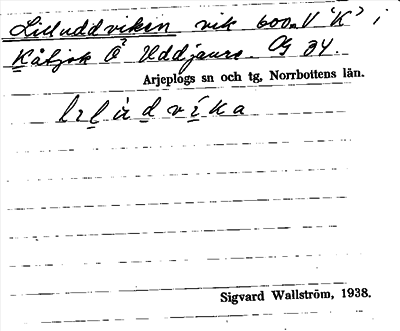 Lilluddviken vik 600m V 'K' i
Kåtjok Ö Uddjaure. Og 34.
Arjeplogs sn och tg, Norrbottens län.
lilùdvíka
Sigvard Wallström, 1938.